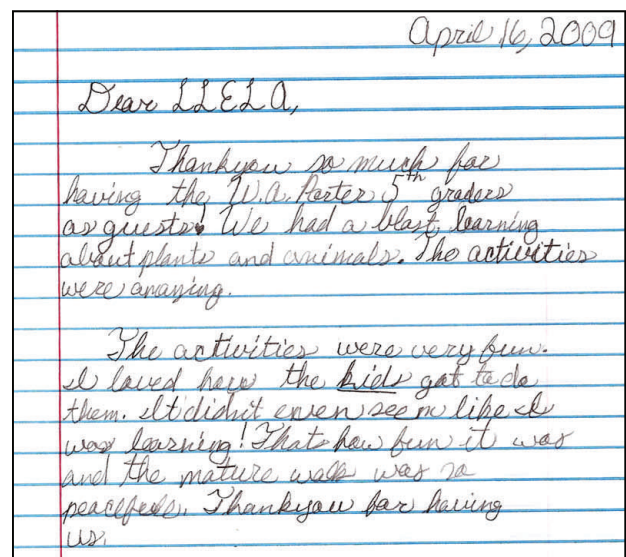 April 16, 2009
Dear LLELA,
Thankyou so much for
having the W.A. Porter 5th graders
as guests! We had a blast learning
about plants and animals. The activities
were amazing.
The activities were very fun.
I loved how the kids got to do
them. It didn't even seem like I
was learning! Thats how fun it was
and the nature walk was so
peacefull. Thankyou for having
us.